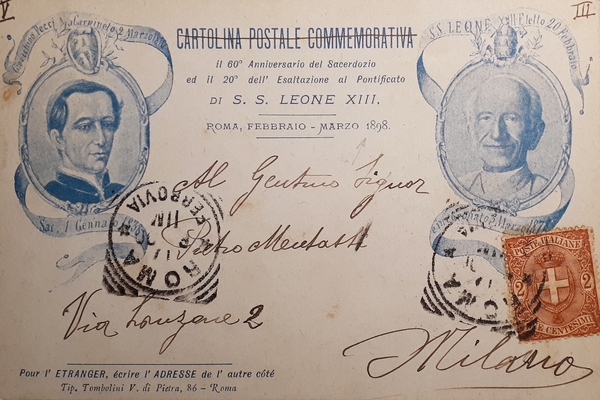 V
III
CARTOLINA POSTALE COMMEMORATIVA
il 60º Anniversario del Sacerdozio
ed il 20º dell' Esaltazione al Pontificato
DI S. S. LEONE XIII.
ROMA, FEBBRAIO - MARZO 1898.
Pecci Carpineto 2 Marzo
S.S. LEONE XIII Eletto 20 Febbraio
Sac. 1 Gennaio
Marzo
Al Gentmo Signor
Pietro
Via 2
Milano
ROMA
FERROVIA
ROMA
POSTE ITALIANE
2 2
CENTESIMI
Pour l' ETRANGER, écrire l' ADRESSE de l' autre côté
Tip. Tombolini V. di Pietra, 86 - Roma